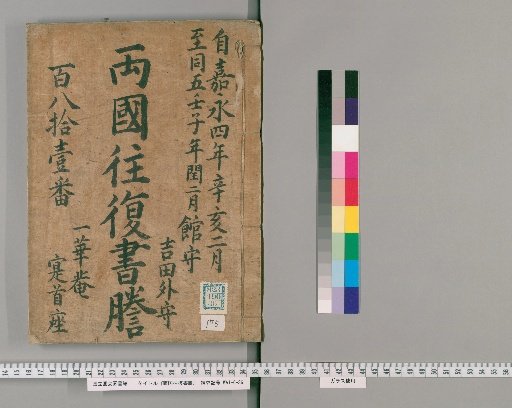 自嘉永四年辛亥二月
至同五壬子年閏二月 館守
吉田外守
両國往復書謄
一華菴
寔首座
百八拾壹番